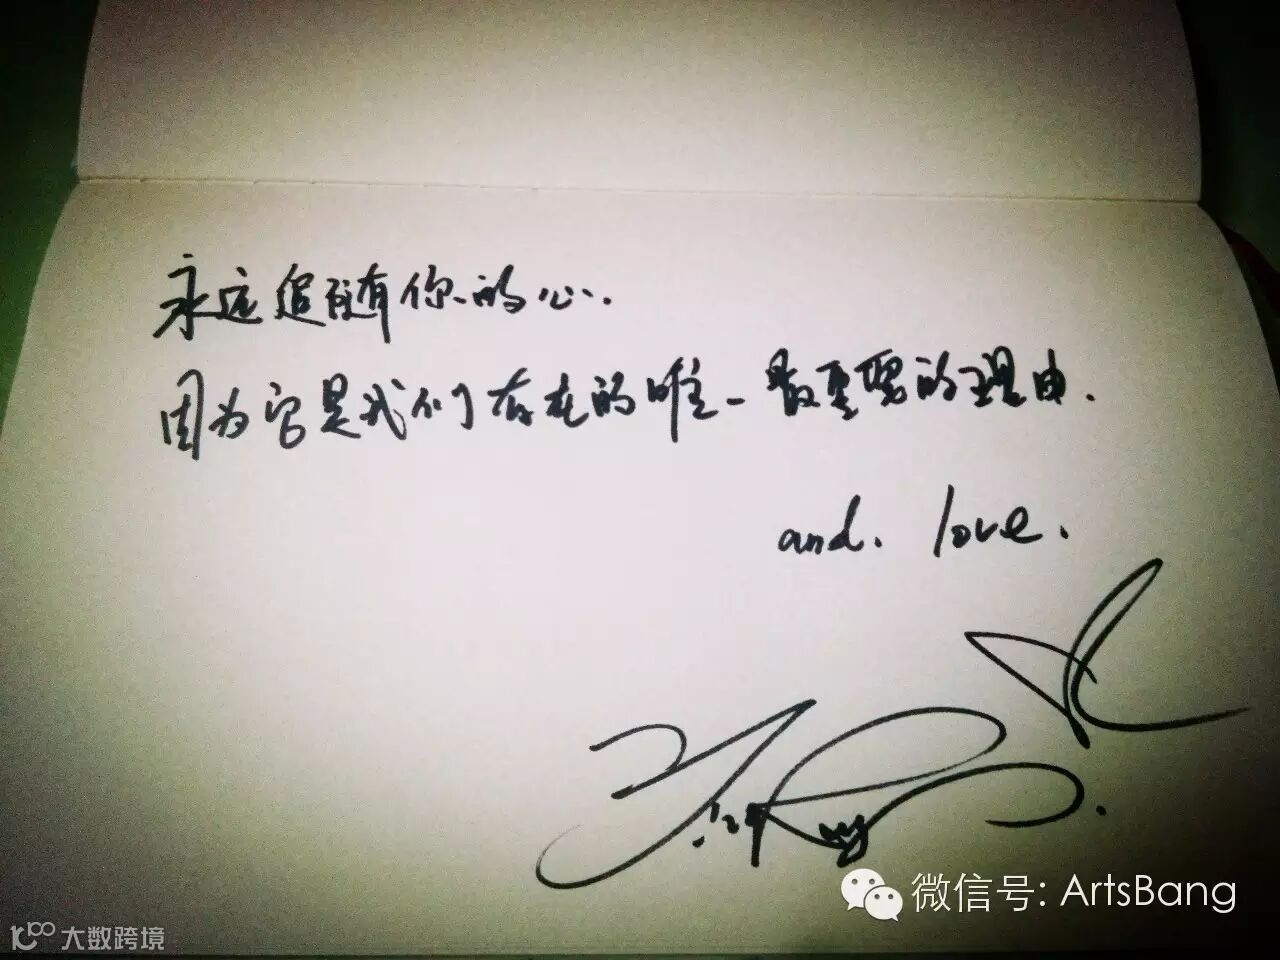 永远追随你的心.
因为它是我们存在的唯一最重要的理由.
and. love.
微信号: ArtsBang
大数跨境